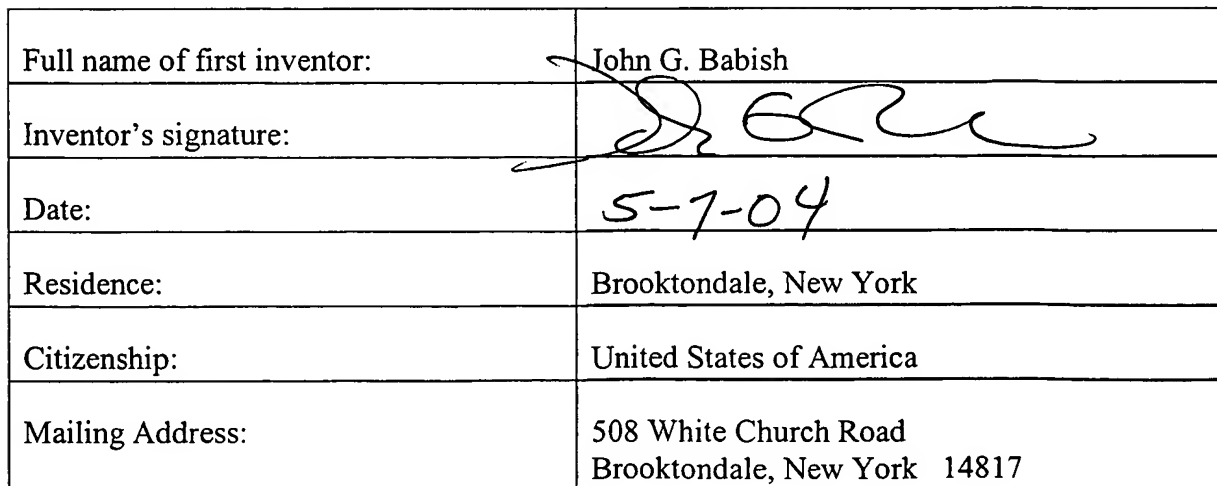 Full name of first inventor: John G. Babish
Inventor's signature:
Date: 5-7-04
Residence: Brooktondale, New York
Citizenship: United States of America
Mailing Address: 508 White Church Road
Brooktondale, New York 14817